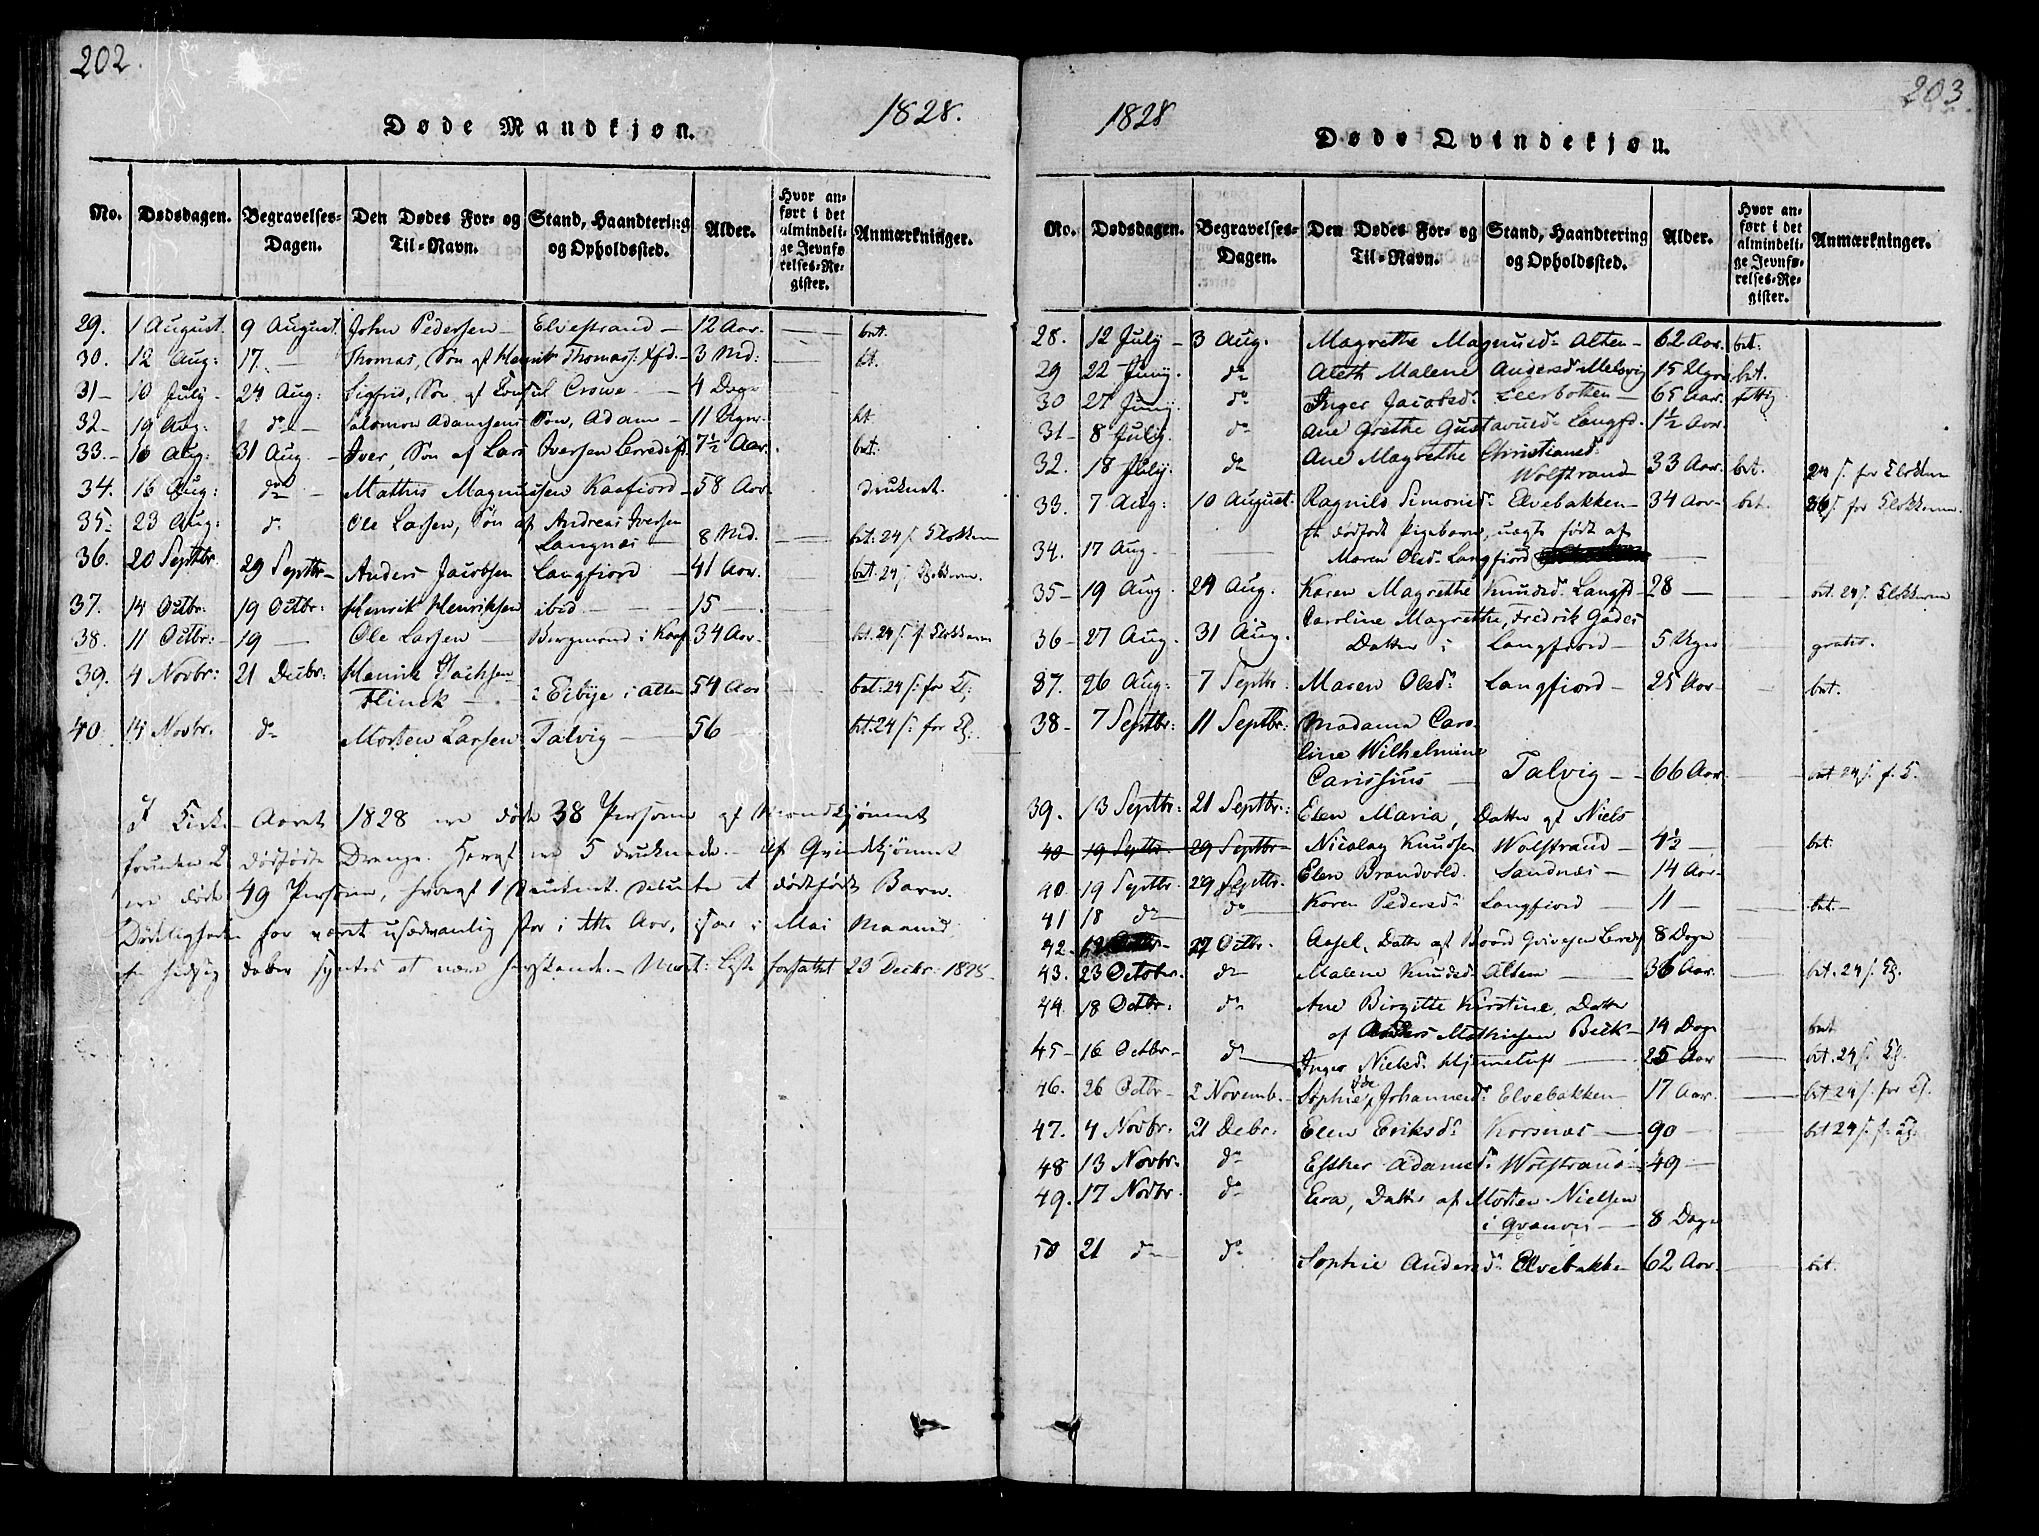 202.
Døde Mandkjøn.
1828.
No. Dødsdagen. Begravelses-Dagen. Den Dødes For- og Til-Navn. Stand, Haandtering og Opholdssted. Alder. Hvor anført i det almindelige Jevnførelses-Register. Anmærkninger.
29. 1 August. 9 August. John Pedersen - Elvestrand - 12 Aar. bet.
30. 12 Aug: 17. - Thomas, Søn af Henrik Thomass: - 3 Md: bt.
31 - 10 July - 24 Aug: Sigfrid, Søn af Consul Crowe - 4 Dage
32 - 19 Aug: do - Salomon Adamsens Søn, Adam - 11 Uger bt.
33. - 16 Aug: 31 Aug. - Iver, Søn af Lars Iversen 7½ Aar. bet.
34. 16 Aug: do - Mathis Magnussen Kaafiord - 58 Aar druknet.
35 - 23 Aug: do Ole Larsen, Søn af Andreas Iversen
Langnæs - 8 Md. bet. 24 ſ. Klokkern
36. 20 Septbr. 29 Septbr - Anders Jacobsen Langfiord - 41 Aar. bet. 24 ſ. Klokkern.
37. 14 Octbr: 19 Octbr: Henrik Henriksen ibid - 15 -
38. 11 Octbr: - 19 - Ole Larsen - Bergmand i Kaaf 34 Aar - bt. 24 ſ. f. Klokkern
39. 4 Novbr: 21 Decbr: Henrik
Flinck - i Alten 54 Aar bet: 24 ſ: for Kl:
40 14 Novbr. do Morten Larsen Talvig - 56 bt. 24 ſ: for Kl:
I Kirke-Aaret 1828 ere døde 38 Personer af Mandkjønnet
foruden 2 dødfødte Drenge. Heraf ere 5 druknede. - Af Qvindkjønnet
ere døde 49 Personer, hvoraf 1 druknet. desuden et dødfødt Barn.
Dødeligheden har været usædvanlig stor i dette Aar, især i Mai Maaned
forfattet 23 Decbr: 1828 -
203.
1828
Døde Qvindekjøn.
No. Dødsdagen. Begravelses-Dagen. Den Dødes For- og Til-Navn. Stand, Haandtering og Opholdssted. Alder. Hvor anført i det almindelige Jevnførelses-Register. Anmærkninger.
28. 12 July - 3 Aug. Magrethe Magnusd. Alten - 62 Aar. bet.
29 22 Juny. do Aleth Malene Andersd. Melsvig 15 Uger bet.
30 27 Juny. do Inger Jacobsd. Leerbotten - 65 Aar. fattig
31 - 8 July. do Ane Grethe Gustavusd. Langfd. 1½ Aar.
32. 18 July. do Ane Magrethe Christiansd.
Wolstrand 33 Aar. bet. 24 ſ. for Klokkern
33. 7 Aug: 10 August. Ragnild Simonsd. Elvebakken - 34 Aar - bet. 36 ſ. for Klokkern.
Et dødfødt Pigebarn, uægte født af
34. 17 Aug. Maren Olsd. Langfiord
35 - 19 Aug. 24 Aug. Karen Magrethe Knudsd. Langfd - 28 - bet. 24 ſ. Klokkern
Caroline Magrethe, Fredrik Gades
36 - 27 Aug. 31 Aug. Datter i Langfiord - 5 Uger gratis.
37. 26 Aug: 7 Septbr. Maren Olsd. Langfiord - 25 Aar - bet.
38 - 7 Septbr: 11 Septbr: Madame Caro-
line Wilhelmine
Carissius - Talvig - 66 Aar - bet 24 ſ. f. K.
39. 13 Septbr: 21 Septbr: Elen Maria, Datter af Niels
40 19 Septbr. 29 Septbr - Nicolay Knudsen Wolstrand - 4½ - bet.
40. 19 Septbr. 29 Septbr. Elen Brandvold. Sandnæs - 14 Aar -
41 18 do do Karen Pedersd. Langfiord - 11 - bet. -
42. 27 Octbr. Aasel, Datter af 8 Dage
43. 23 October. do Malene Knudsd. Alten - 36 Aar. bet. 24 ſ. Kl.
44. 18 Octbr: do Ane Birgitte Kirstine, Datter
af Anders Mathiesen Beck - 14 Dage bet
45 - 16 Octbr - do Inger Nielsd. Hjemeluft - 25 Aar - bet. 24 ſ. Kl.
46. 26 Octbr - 2 Novemb. - Sophie Johannesd. Elvebakken - 17 Aar. bet 24 ſ. for Kl.
47. 4 Novbr: 21 Debr: Elen Eriksd. Korsnæs - 90 - bet 24 ſ. f. Kl.
48 13 Novbr. do Esther Adamsd. Wolstrand - 49 -
49. 17 Novbr. do Eva, Datter af Morten Nielsen
i - 8 Dage
50 21 do do Sophie Andersd. Elvebakken - 62 Aar. - bet.